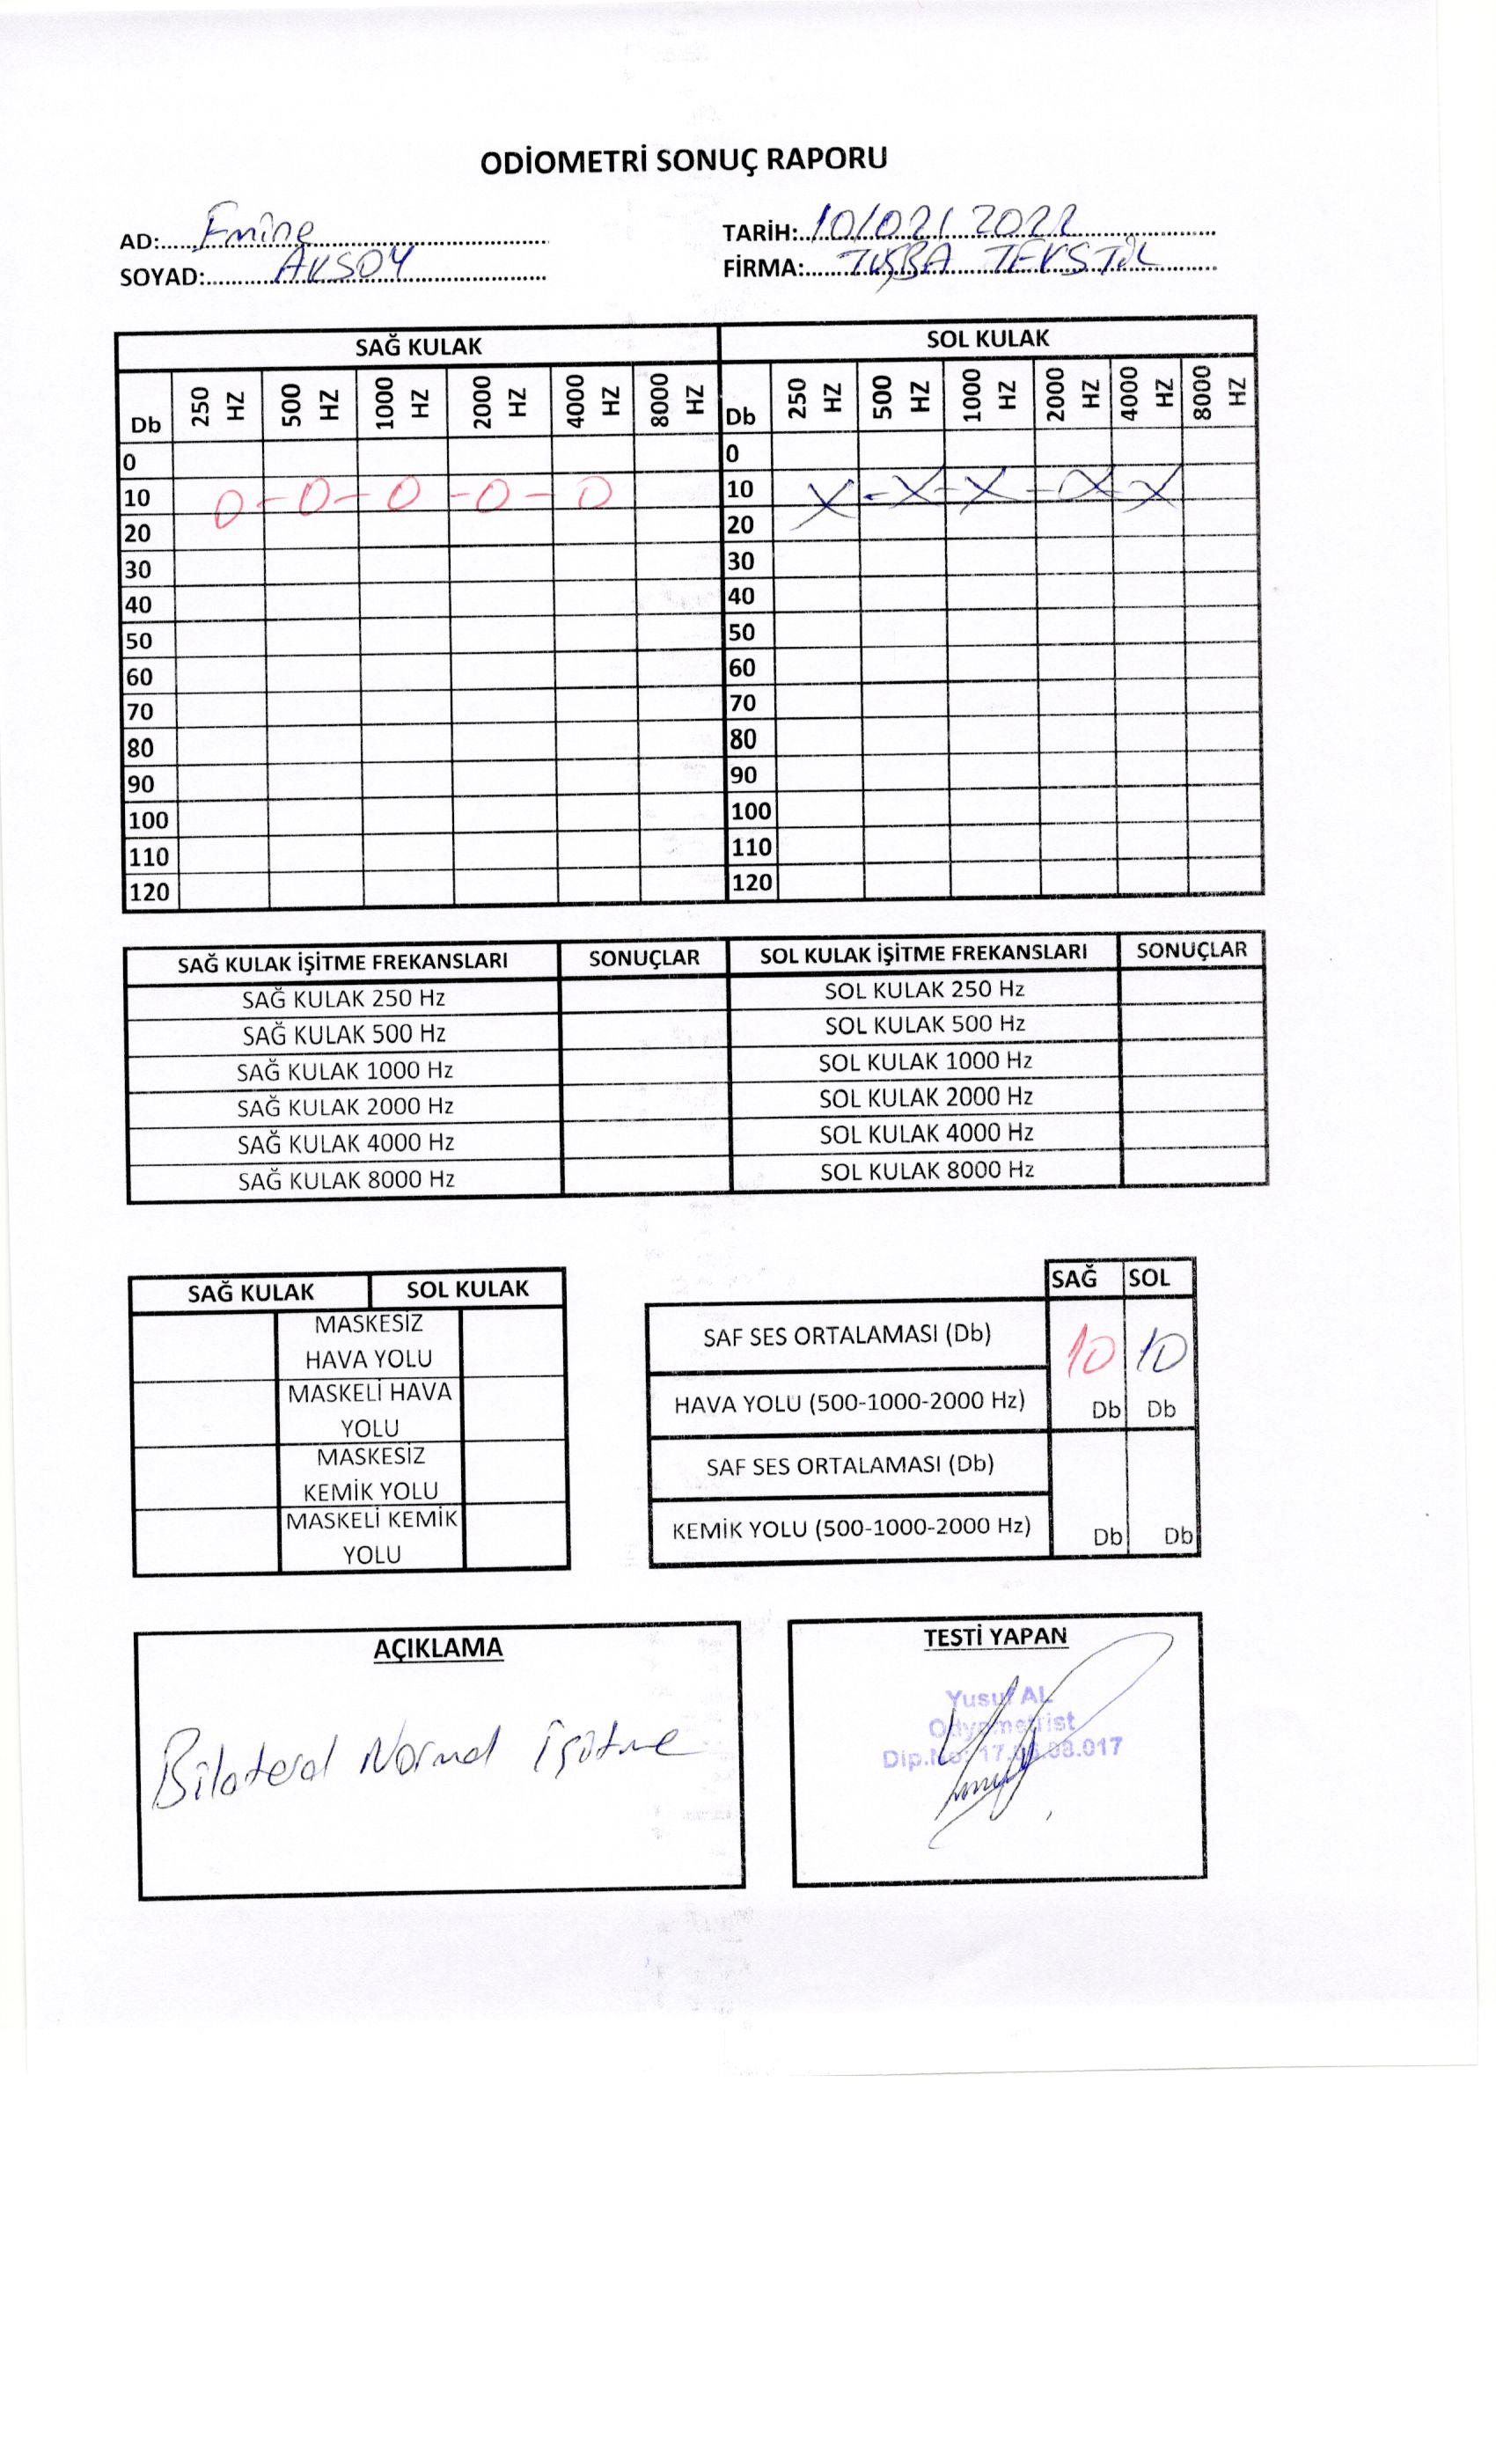 ODİOMETRİ SONUÇ RAPORU
AD: Emine
TARİH: 10/02/2022
SOYAD: AKSOY
FİRMA: TUĞBA TEKSTİL
SAĞ KULAK SOL KULAK
Db 250 HZ 500 HZ 1000 HZ 2000 HZ 4000 HZ 8000 HZ Db 250 HZ 500 HZ 1000 HZ 2000 HZ 4000 HZ 8000 HZ
0 0
10 0-0-0-0-0 10 X-X-X-X-X
20 20
30 30
40 40
50 50
60 60
70 70
80 80
90 90
100 100
110 110
120 120
SAĞ KULAK İŞİTME FREKANSLARI SONUÇLAR SOL KULAK İŞİTME FREKANSLARI SONUÇLAR
SAĞ KULAK 250 Hz SOL KULAK 250 Hz
SAĞ KULAK 500 Hz SOL KULAK 500 Hz
SAĞ KULAK 1000 Hz SOL KULAK 1000 Hz
SAĞ KULAK 2000 Hz SOL KULAK 2000 Hz
SAĞ KULAK 4000 Hz SOL KULAK 4000 Hz
SAĞ KULAK 8000 Hz SOL KULAK 8000 Hz
SAĞ KULAK SOL KULAK
MASKESİZ
HAVA YOLU
MASKELİ HAVA
YOLU
MASKESİZ
KEMİK YOLU
MASKELİ KEMİK
YOLU
SAĞ SOL
SAF SES ORTALAMASI (Db) 10 10
HAVA YOLU (500-1000-2000 Hz) Db Db
SAF SES ORTALAMASI (Db)
KEMİK YOLU (500-1000-2000 Hz) Db Db
AÇIKLAMA
Bilateral Normal İşitme
TESTİ YAPAN
Yusuf AL
Odyometrist
Dip.No: 17.08.017